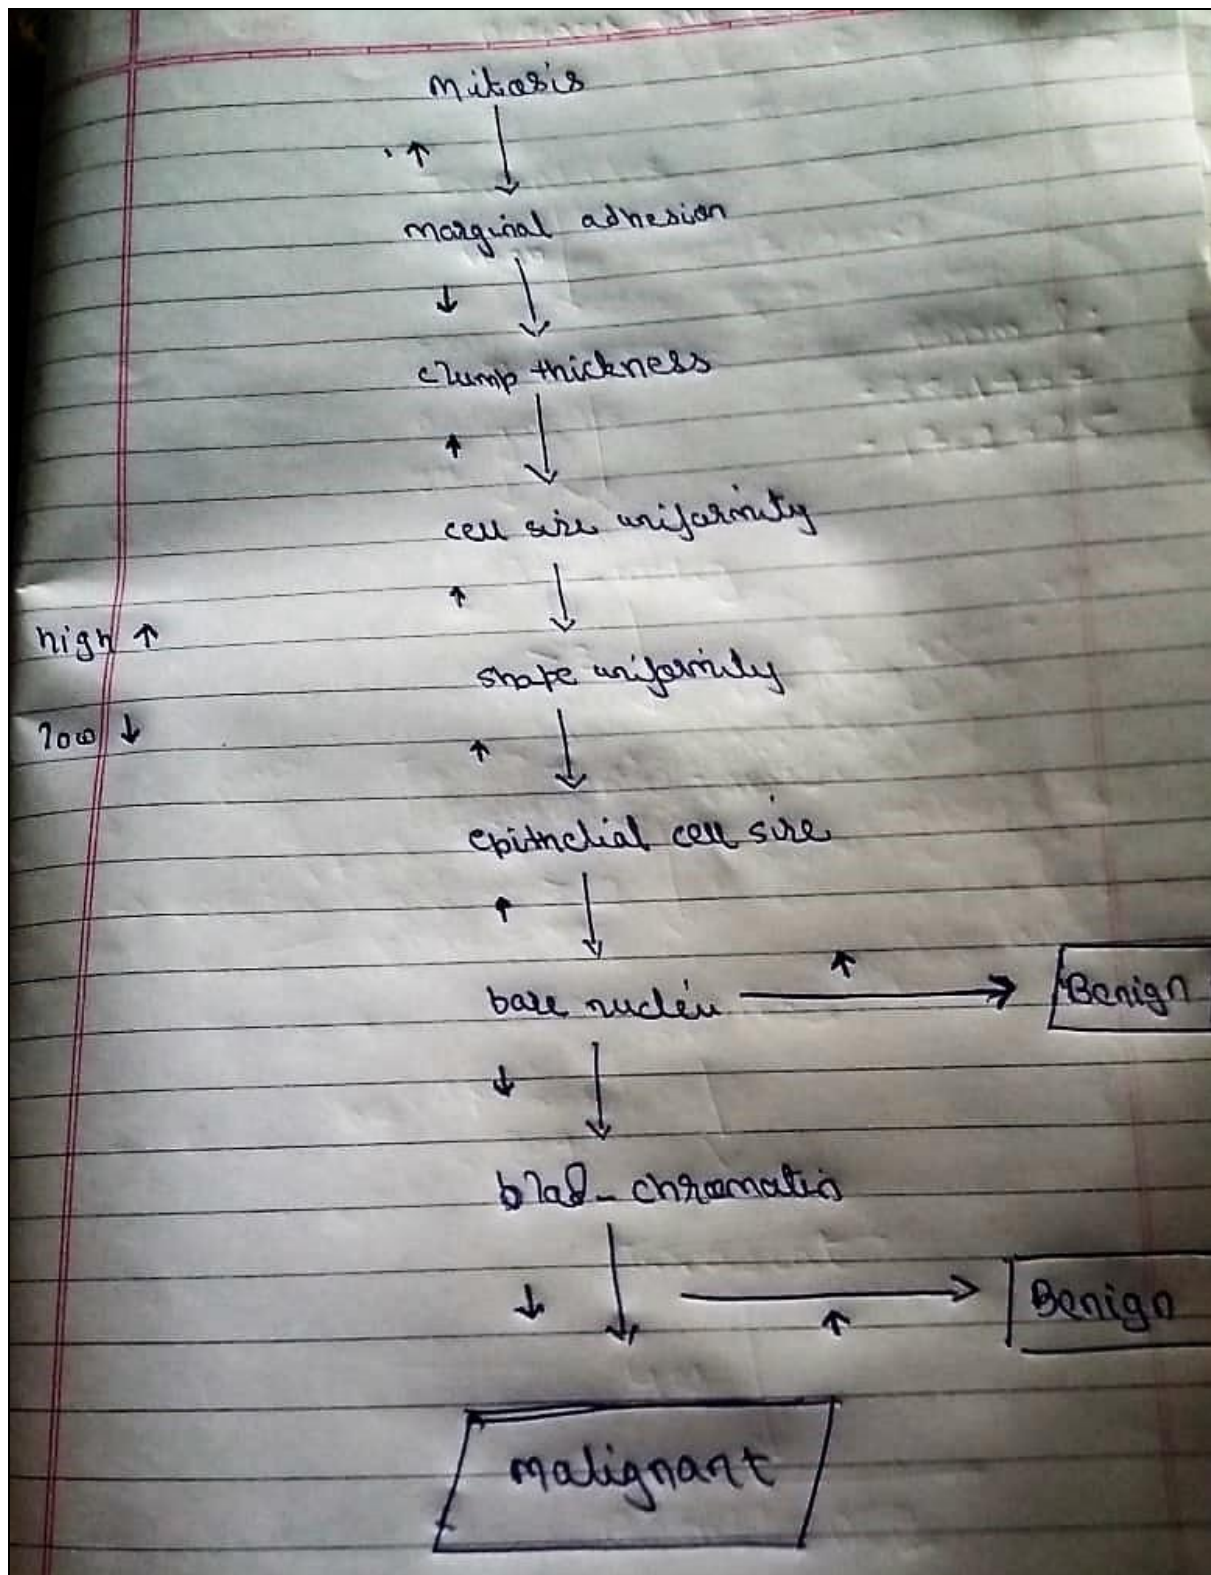 mitosis
↑
marginal adhesion
↓
clump thickness
↑
cell size uniformity
↑
high ↑
shape uniformity
low ↓
↑
epithelial cell size
↑
↑
bare nuclei
Benign
↓
chromatin
↓
↑
Benign
malignant